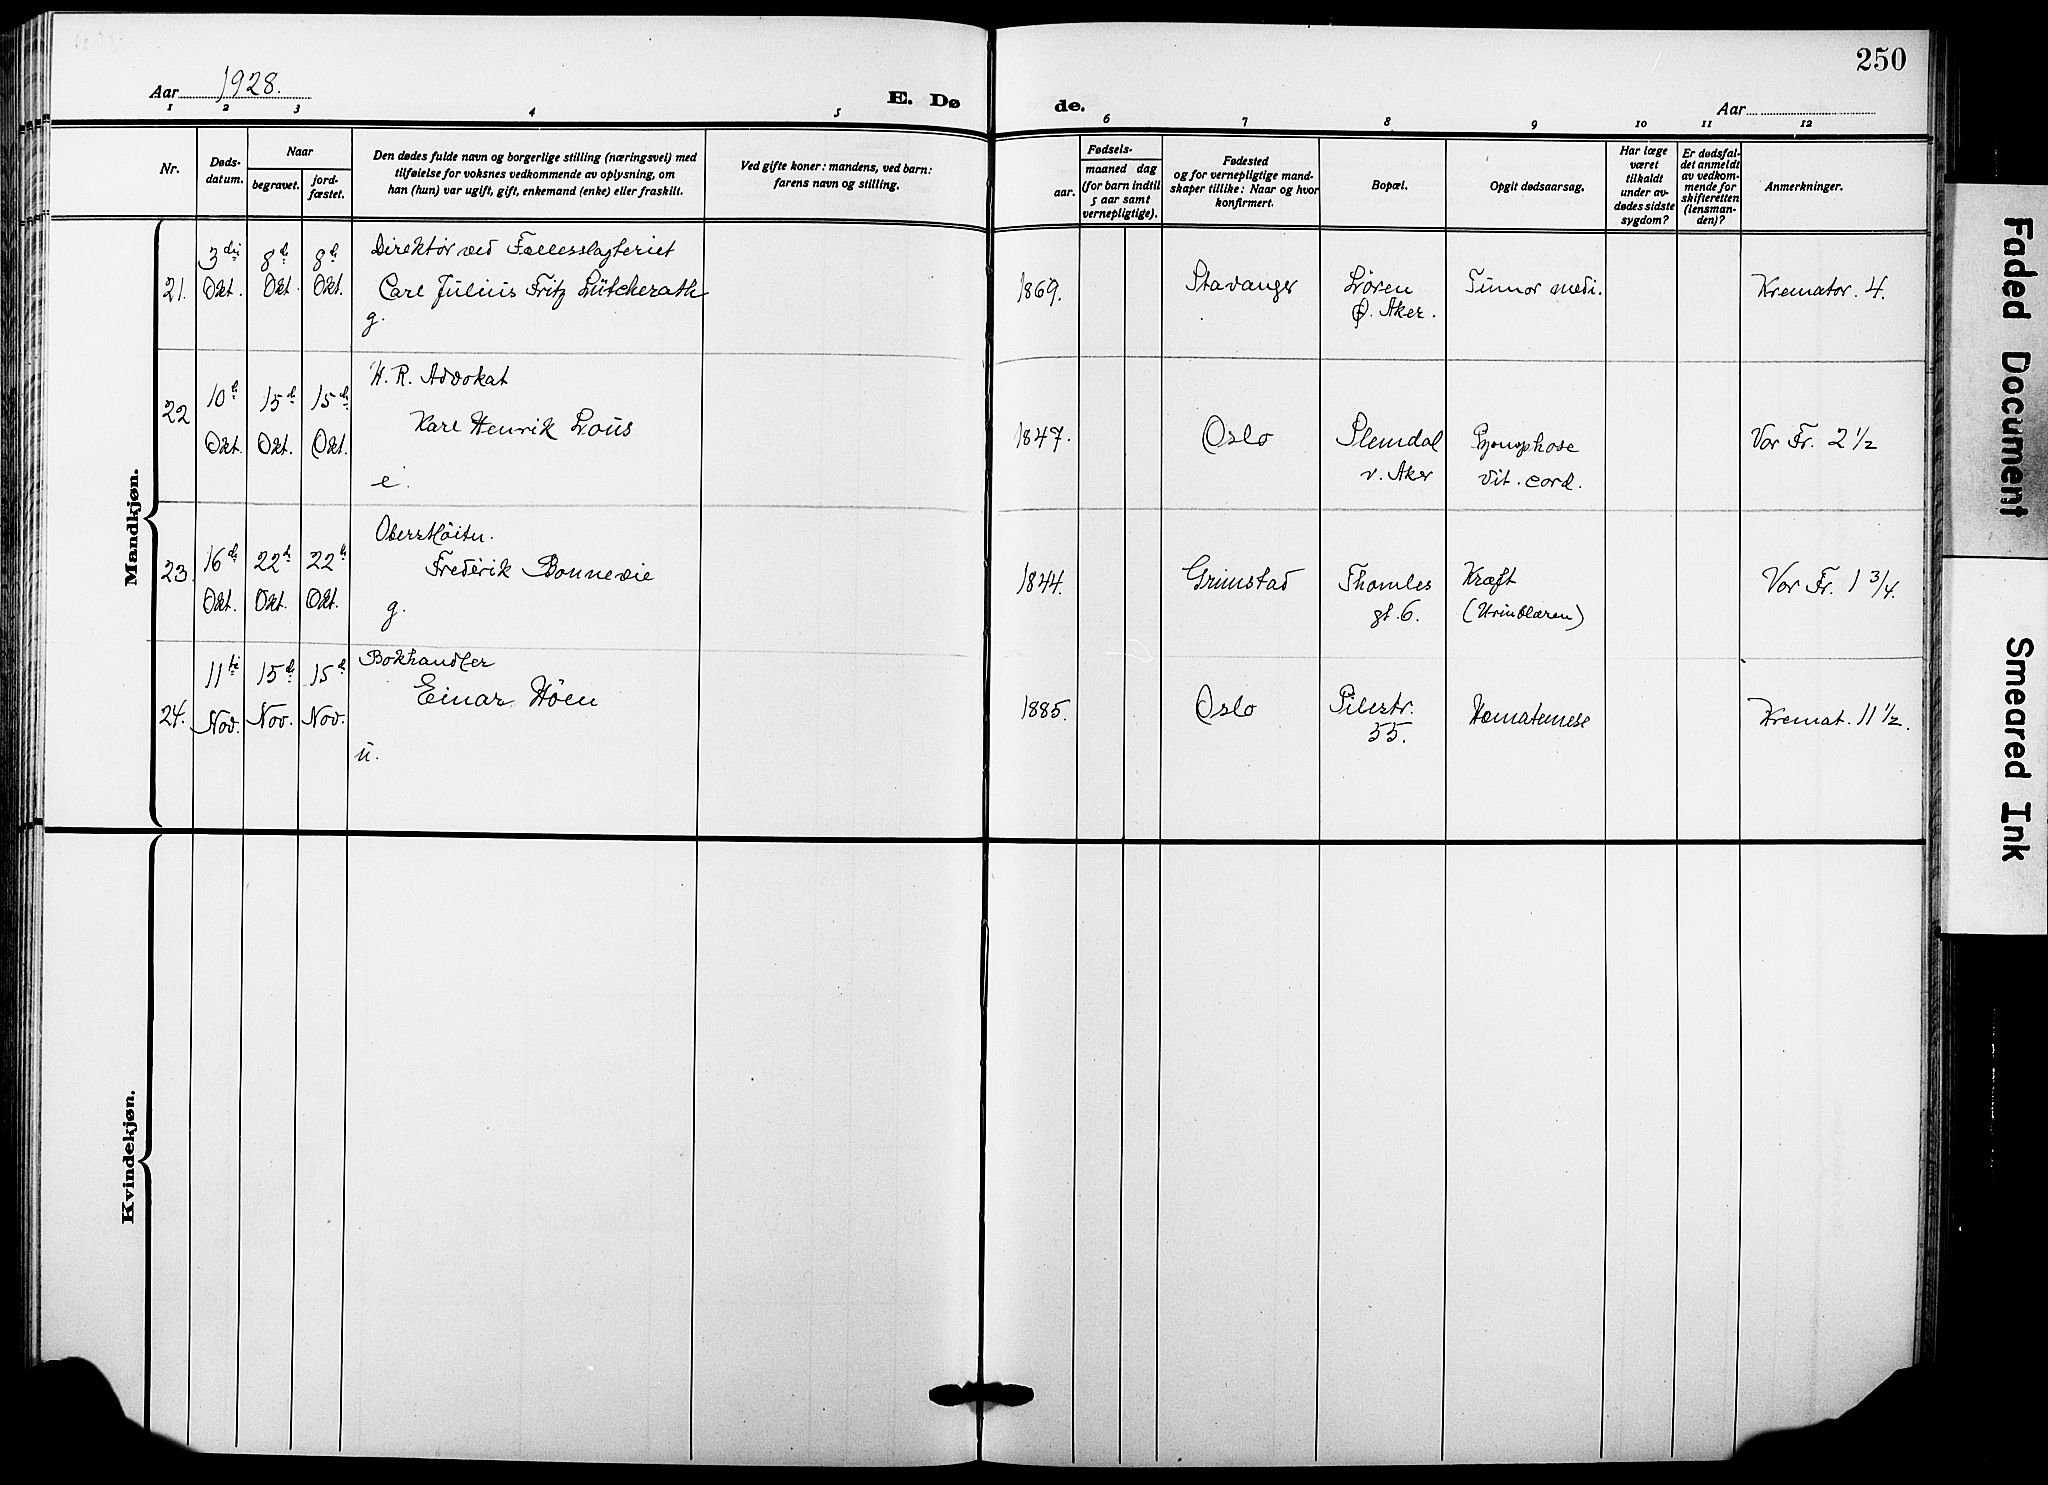 250
Aar 1928.
E. Dø
de.
Aar
1 2 3 4 5 6 7 8 9 10 11 12
Nr.
Døds-
datum.
Naar
begravet.
jord-
fæstet.
Den dødes fulde navn og borgerlige stilling (næringsvei) med
tilføielse for voksnes vedkommende av oplysning, om
han (hun) var ugift, gift, enkemand (enke) eller fraskilt.
Ved gifte koner: mandens, ved barn:
farens navn og stilling.
Fødsels-
aar.
maaned dag
(for barn indtil
5 aar samt
vernepligtige).
Fødested
og for vernepligtige mand-
skaper tillike: Naar og hvor
konfirmert.
Bopæl.
Opgit dødsaarsag.
Har læge
været
tilkaldt
under av-
dødes sidste
sygdom?
Er dødsfal-
det anmeldt
av vedkom-
mende for
skifteretten
(lensman-
den)?
Anmerkninger.
Mandkjøn.
21.
3die
Okt.
8de
Okt.
8de
Okt.
Direktör ved Fællesslagteriet
Carl Julius Fritz Lütcherath
g.
1869.
Stavanger
Lören
Ø. Aker.
Tumor medi.
Kremator. 4.
22
10de
Okt.
15de
Okt.
15de
Okt.
H. R. Advokat
Karl Henrik Lous
e.
1847.
Oslo
Slemdal
v. Aker
Vit. cord.
Vor Fr. 2 1/2
23.
16de
Okt.
22de
Okt.
22de
Okt.
Oberstlöitn.
Frederik Bonnevie
g.
1844.
Grimstad
Thomles
gt. 6.
Kræft
(Urinblæren)
Vor Fr. 1 3/4.
24.
11te
Nov.
15de
Nov.
15de
Nov.
Bokhandler
Einar Höen
u.
1885.
Oslo
Pilestr.
55.
Hæmatemese
Kremat. 11 1/2.
Kvindekjøn.
Faded Document
Smeared Ink